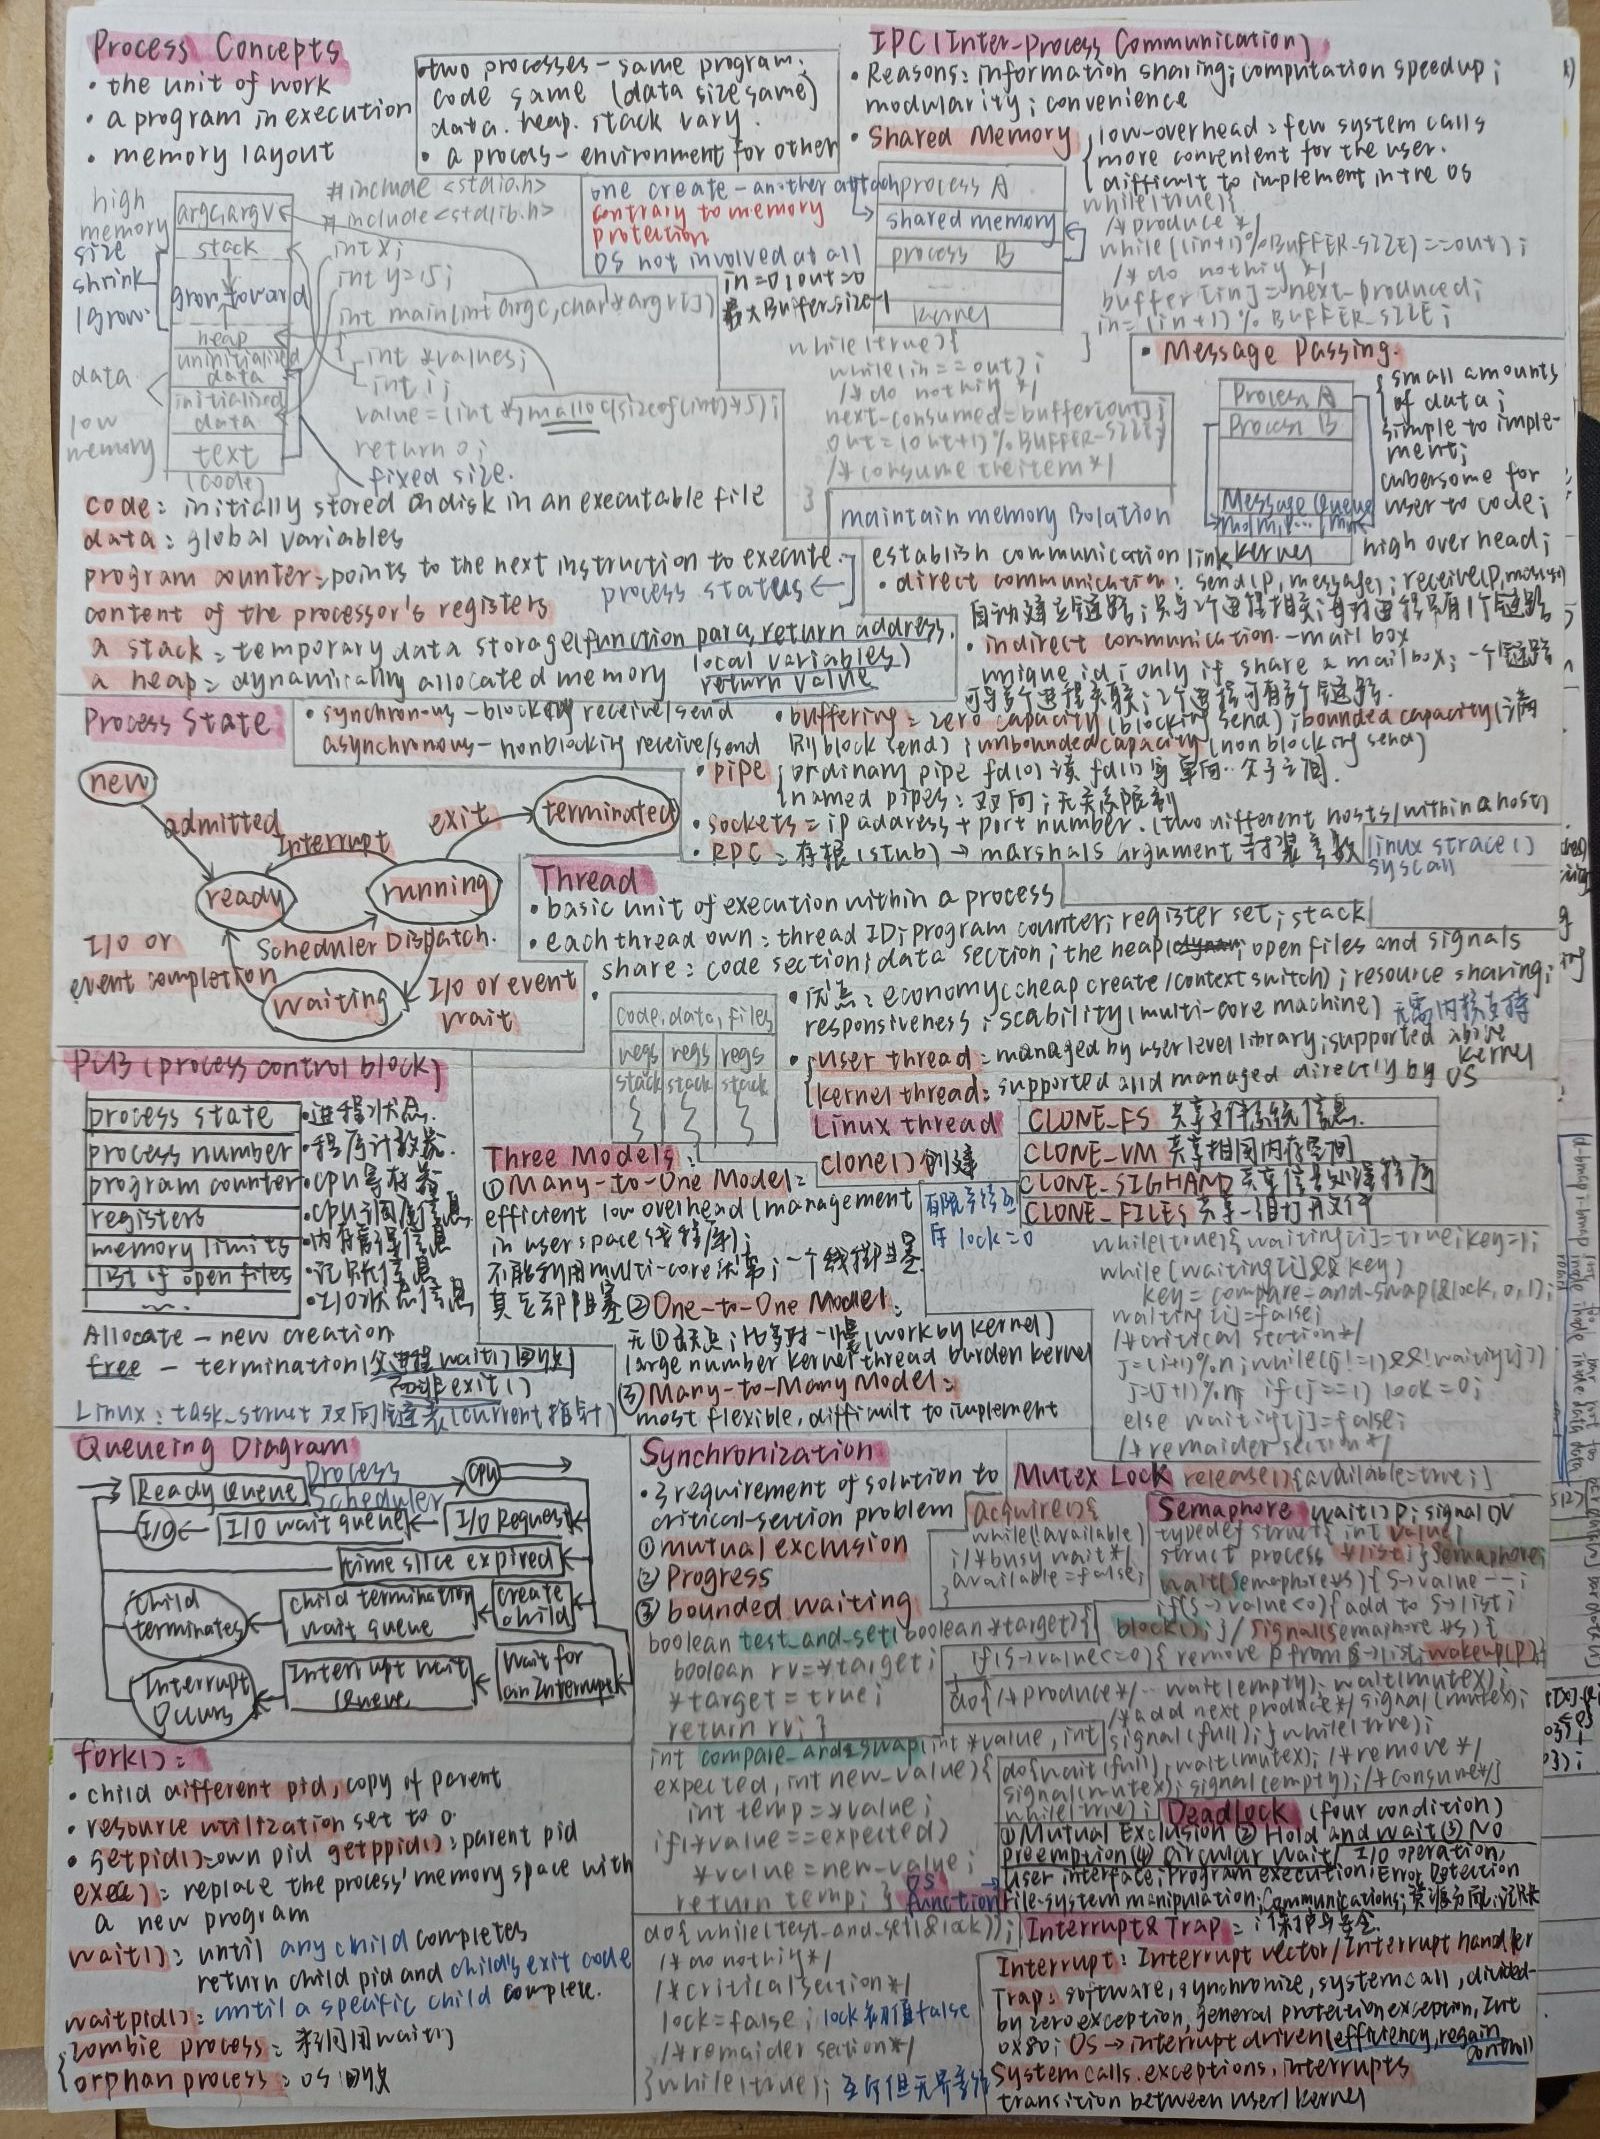 Process Concepts
• the unit of work
• a program in execution
• memory layout
• two processes - same program.
code same (data size same)
data. heap. stack vary.
• a process - environment for other
high
memory
size
shrink
/grow.
data
low
memory
argc, argv
stack
grow toward
heap
uninitialized
data
initialized
data
text
(code)
#include <stdio.h>
#include <stdlib.h>
int x;
int y=15;
int main(int argc, char *argv[])
{
int *values;
int i;
value = (int *)malloc(sizeof(int)*5);
return 0;
}
fixed size.
code: initially stored on disk in an executable file
data: global variables
program counter: points to the next instruction to execute.
content of the processor's registers
process status ←
a stack: temporary data storage (function para, return address.
local variables)
return value
a heap: dynamically allocated memory
IPC (Inter-Process Communication)
• Reasons: information sharing; computation speedup;
modularity; convenience
• Shared Memory
low-overhead: few system calls
more convenient for the user.
difficult to implement in the OS
one create - another attach
contrary to memory
protection
OS not involved at all
process A
shared memory
process B
kernel
in=0; out=0
最大Buffer_size-1
while(true){
/*produce*/
while((in+1)%BUFFER_SIZE)==out);
/* do nothiy */
buffer[in]=next_produced;
in=(in+1)% BUFFER_SIZE;
}
while(true){
while(in==out);
/*do nothiy */
next-consumed=buffer[out];
out=(out+1)% BUFFER_SIZE;
/*consume the item*/
}
• Message Passing.
Process A
Process B
Message Queue
kernel
small amounts
of data;
simple to imple-
ment;
cubersome for
user to code;
high over head;
maintain memory Isolation
establish communication link
• direct communication: send(P, message); receive(P, message)
自动建立链路; 只与2个进程相关; 每对进程只有1个链路
• indirect communication. - mail box
unique id; only if share a mailbox; 一个链路
可与多个进程关联; 2个进程可有多个链路.
• synchronous - blocking receive/send
asynchronous - nonblocking receive/send
• buffering: zero capacity (blocking send); bounded capacity (满
则block send); unbounded capacity (non blocking send)
• pipe
ordinary pipe fd[0]读 fd[1]写 单向. 父子之间.
named pipes: 双向; 无关系限制
• sockets = ip address + port number. (two different hosts/within a host)
• RPC: 存根(stub) → marshals argument 封装参数
linux strace()
syscall
Process State
new
admitted
Interrupt
exit
terminated
ready
running
Scheduler Dispatch.
I/O or
event completion
waiting
I/O or event
wait
Thread
• basic unit of execution within a process
• each thread own: thread ID; program counter; register set; stack
share: code section; data section; the heap; open files and signals
code, data, files
regs regs regs
stack stack stack
• 优点: economy (cheap create/context switch); resource sharing;
responsiveness; scability (multi-core machine) 无需内核支持
• user thread: managed by user level library; supported above kernel
kernel thread: supported and managed directly by OS
Linux thread
clone() 创建
CLONE_FS 共享文件系统信息.
CLONE_VM 共享相同内存空间
CLONE_SIGHAND 共享信号处理程序
CLONE_FILES 共享一组打开文件
PCB (process control block)
process state
process number
program counter
registers
memory limits
list of open files
....
• 进程状态.
• 程序计数器.
• cpu寄存器
• cpu调度信息
• 内存管理信息
• 记账信息
• I/O状态信息
Allocate - new creation
free - termination (父进程wait()回收)
而非exit()
Linux: task_struct 双向链表 (current 指针)
Three Models:
① Many-to-One Model:
efficient low overhead (management
in user space 线程库);
不能利用multi-core 一个线程阻塞
其它都阻塞
② One-to-One Model:
无①缺点; 比多对一慢 (work by kernel)
large number kernel thread burden kernel
③ Many-to-Many Model:
most flexible, difficult to implement
有限等待
lock=0
while(true){ waiting[i]=true; key=1;
while (waiting[i]&& key)
key = compare-and-swap(&lock, 0, 1);
waiting[i]=false;
/*critical section*/
j=(i+1)%n; while((j!=i)&&!waiting[j])
j=(j+1)%n; if(j==i) lock=0;
else waiting[j]=false;
/*remaider section*/
Queueing Diagram
Ready Queue
Process
Scheduler
cpu
I/O
I/O wait queue
I/O Request
time slice expired
child
terminates
child termination
wait queue
create
child
Interrupt
Occurs
Interrupt wait
Queue
wait for
an Interrupt
fork():
• child different pid, copy of parent
• resource utilization set to 0.
• getpid(): own pid getppid(): parent pid
exec(): replace the process' memory space with
a new program
wait(): until any child completes
return child pid and child's exit code
waitpid(): until a specific child complete.
zombie process:
orphan process: OS 回收
Synchronization
• 3 requirement of solution to
critical-section problem
① mutual exclusion
② Progress
③ bounded waiting
boolean test_and_set(boolean *target){
boolean rv=*target;
*target = true;
return rv; }
int compare_and_swap(int *value, int
expected, int new_value){
int temp=*value;
if(*value==expected)
*value=new_value;
return temp; }
do{ while(test_and_set(&lock));
/*do nothiy*/
/*critical section*/
lock=false; lock初值false
/*remaider section*/
}while(true);
Mutex Lock release(){available=true;}
acquire(){
while(!available)
; /*busy wait*/
available=false;
}
Semaphore wait() P; signal() V
typedef struct{ int value;
struct process *list; }Semaphore;
wait(Semaphore *s){ S->value--;
if(S->value<0){ add to S->list;
block(); } } signal(semaphore *s){
if(S->value<=0){ remove P from S->list; wakeup(P);}
do{ /*produce*/ ... wait(empty); wait(mutex);
/*add next produce*/ signal(mutex);
signal(full); }while(true);
do{wait(full); wait(mutex); /*remove*/
signal(mutex); signal(empty); /*consume*/}
while(true);
Deadlock (four condition)
① Mutual Exclusion ② Hold and wait ③ No
preemption ④ circular wait
OS
function
I/O operation,
user interface; Program execution; Error Detection
File-system manipulation; Communications; 资源分配; 记账
; 保护与安全.
Interrupt & Trap:
Interrupt: Interrupt vector/Interrupt handler
Trap: software, synchronize, system call, divided-
by zero exception, general protection exception, Int
0x80; OS → interrupt driven (efficiency, regain
control)
System calls. exceptions, interrupts
transition between user/kernel